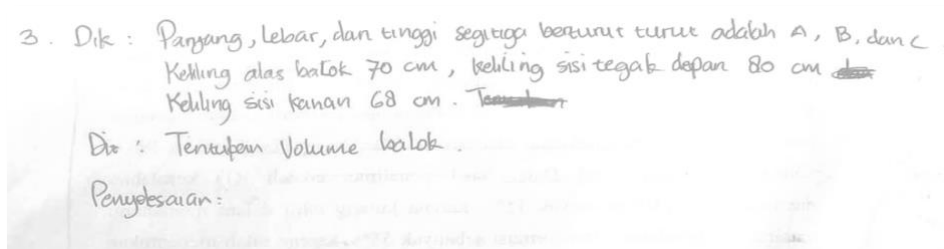 3. Dik : Panjang, Lebar, dan tinggi segitiga berturut turut adalah A, B, dan C
Keliling alas balok 70 cm, keliling sisi tegak depan 80 cm
Keliling sisi kanan 68 cm.
Dit : Tentukan Volume balok.
Penyelesaian :